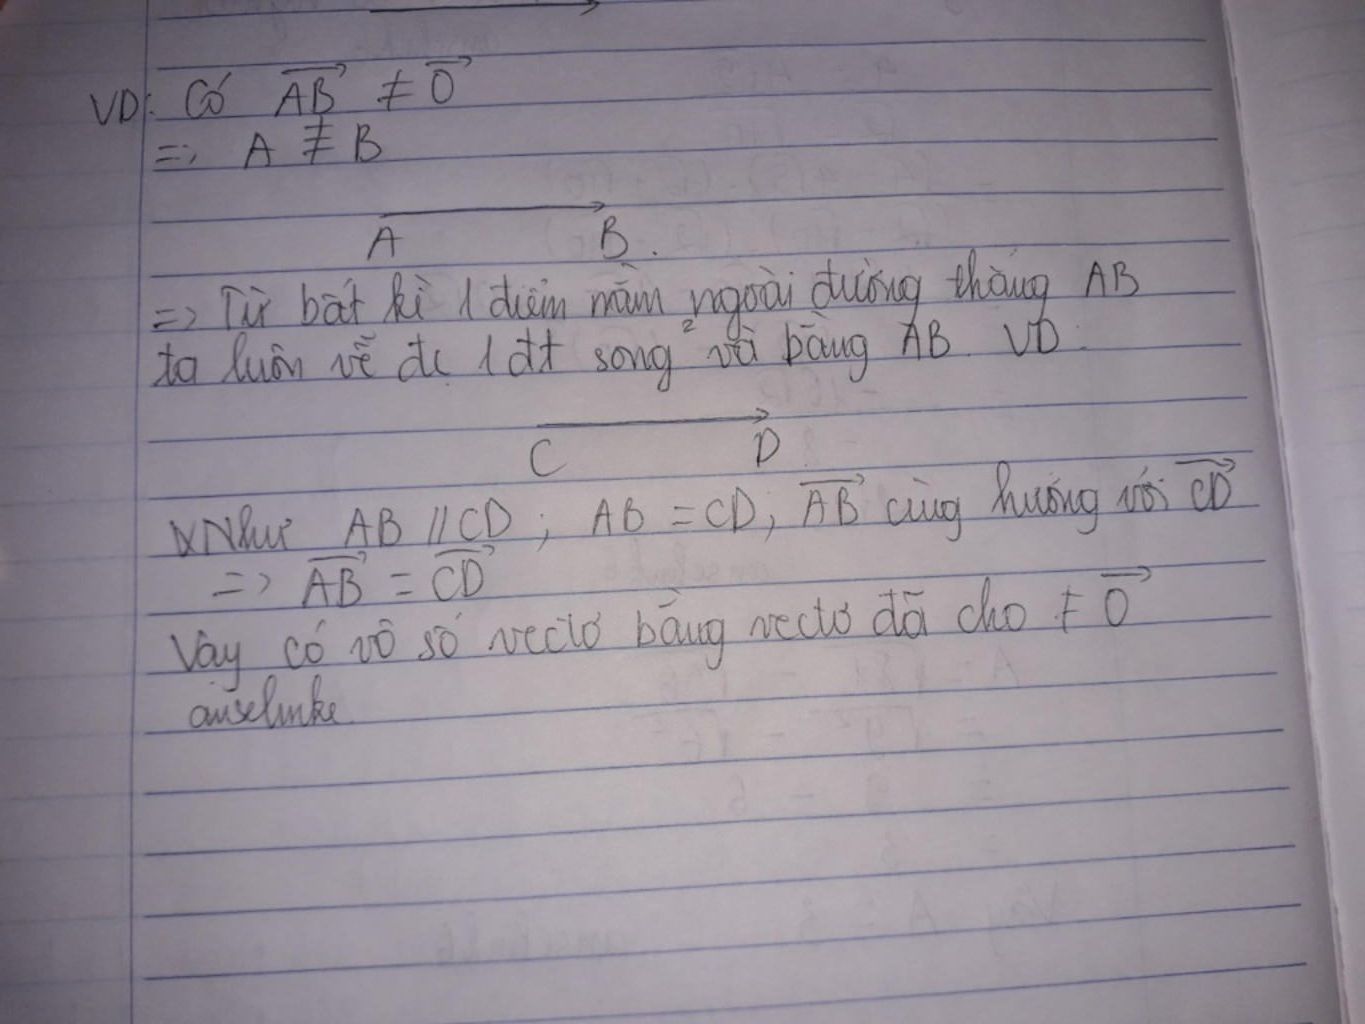 VD: Có \overrightarrow{AB} ≠ \overrightarrow{0}
=> A ≢ B
A B.
=> Từ bất kì 1 điểm nằm ngoài đường thẳng AB
ta luôn vẽ đc 1 đt song² và bằng AB. VD:
C D
Như AB // CD ; AB = CD; \overrightarrow{AB} cùng hướng với \overrightarrow{CD}
=> \overrightarrow{AB} = \overrightarrow{CD}
Vậy có vô số vectơ bằng vectơ đã cho ≠ \overrightarrow{0}